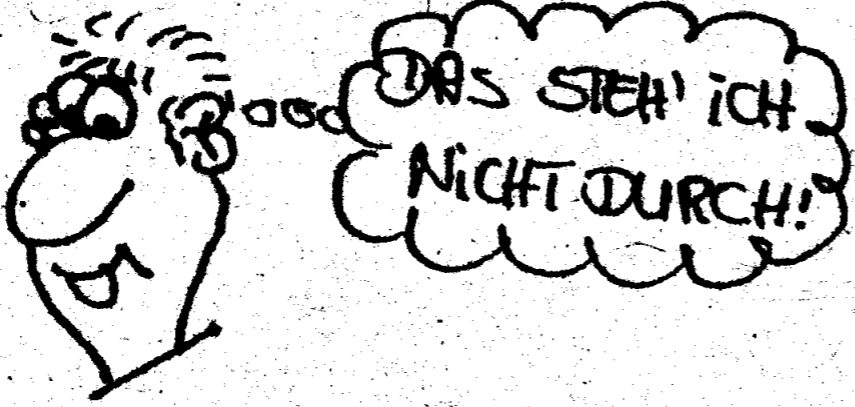 DAS STEH' iCH
NiCHT DURCH!